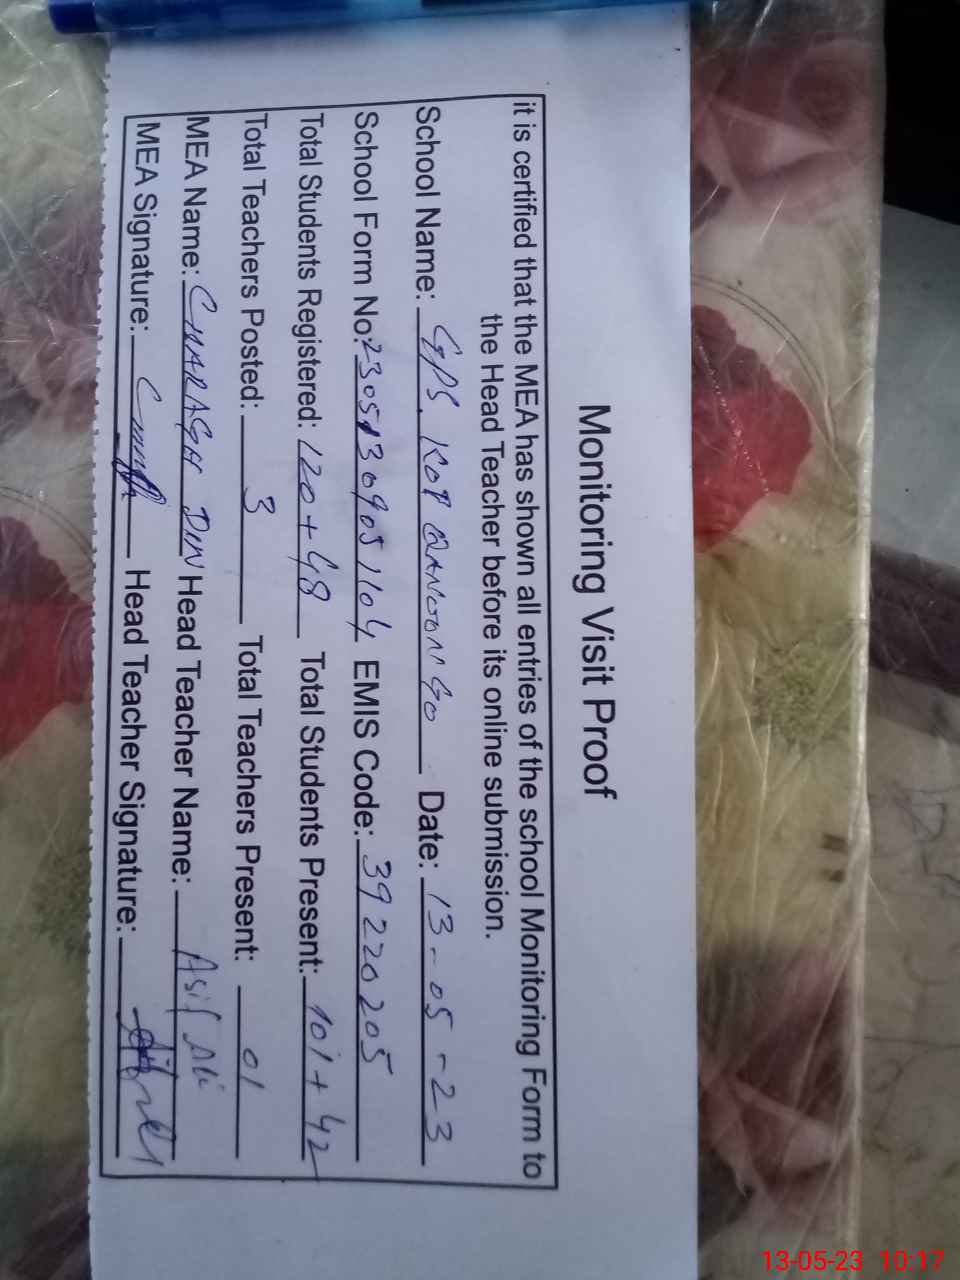 Monitoring Visit Proof
it is certified that the MEA has shown all entries of the school Monitoring Form to
the Head Teacher before its online submission.
School Name: GPS KOT QANOON GO Date: 13-05-23
School Form No: 23051309051104 EMIS Code: 39220205
Total Students Registered: 120+48 Total Students Present: 101+42
Total Teachers Posted: 3 Total Teachers Present: 01
MEA Name: CHARAGH DIN Head Teacher Name: Asif Ali
MEA Signature: Head Teacher Signature:
13-05-23 10:17